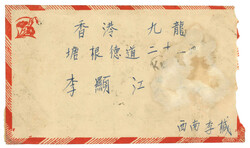 香港 九龍
塘根德道二十一
李顯江
西南李城